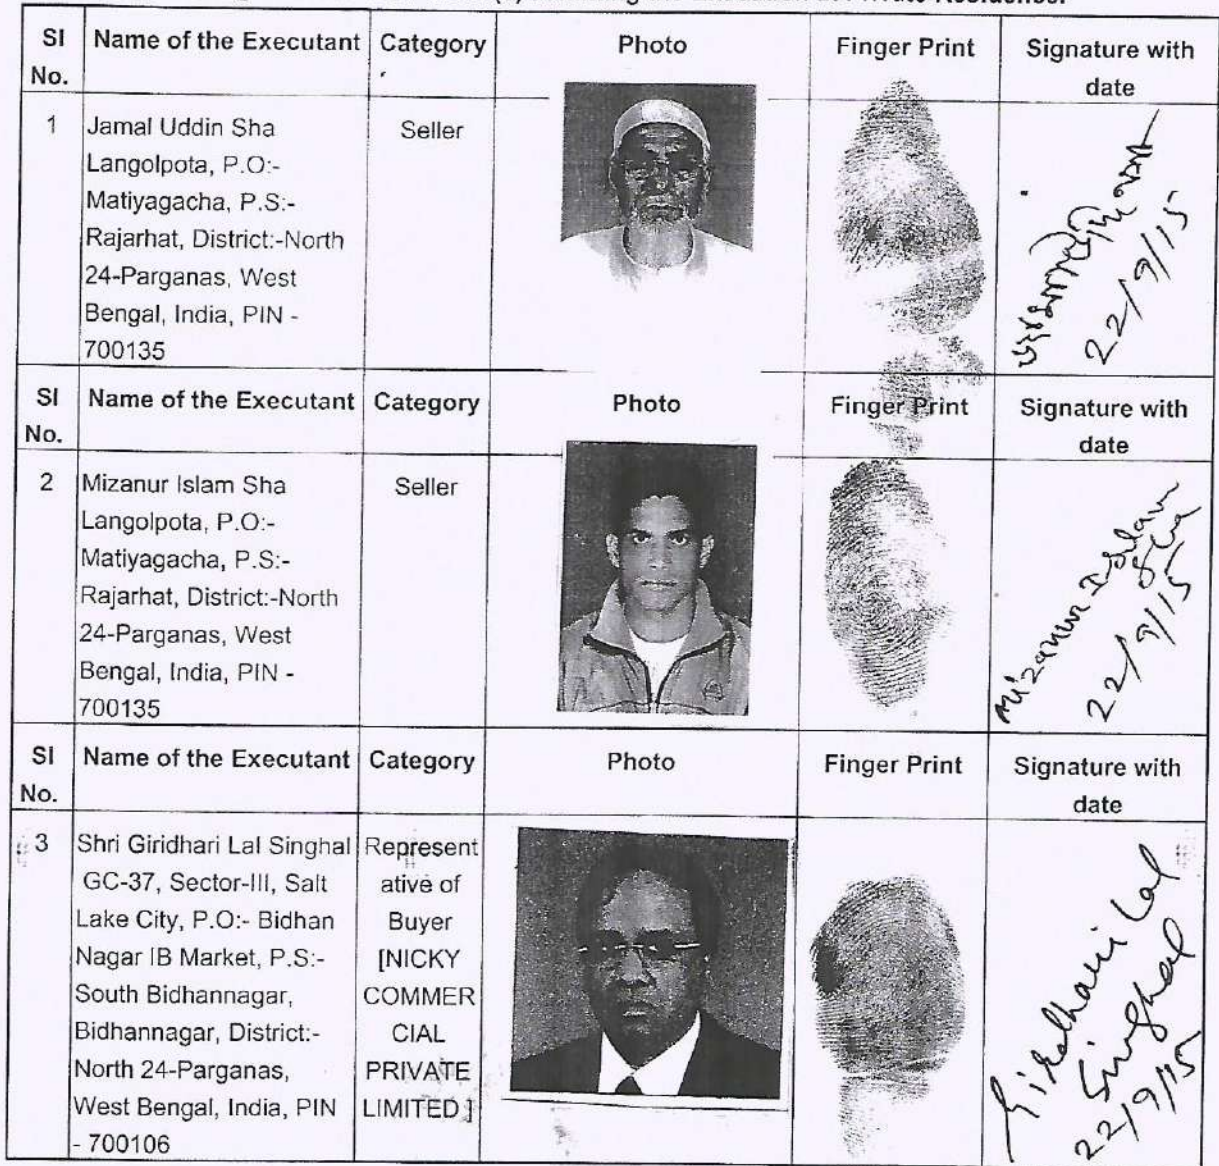 SI No. Name of the Executant Category Photo Finger Print Signature with date
1 Jamal Uddin Sha Seller
Langolpota, P.O:-
Matiyagacha, P.S:-
Rajarhat, District:-North
24-Parganas, West
Bengal, India, PIN -
700135
22/9/15
SI No. Name of the Executant Category Photo Finger Print Signature with date
2 Mizanur Islam Sha Seller
Langolpota, P.O:-
Matiyagacha, P.S:-
Rajarhat, District:-North
24-Parganas, West
Bengal, India, PIN -
700135
Mizanur Islam
Sha
22/9/15
SI No. Name of the Executant Category Photo Finger Print Signature with date
3 Shri Giridhari Lal Singhal
GC-37, Sector-III, Salt
Lake City, P.O:- Bidhan
Nagar IB Market, P.S:-
South Bidhannagar,
Bidhannagar, District:-
North 24-Parganas,
West Bengal, India, PIN
- 700106
Represent
ative of
Buyer
[NICKY
COMMER
CIAL
PRIVATE
LIMITED ]
Giridhari Lal
Singhal
22/9/15